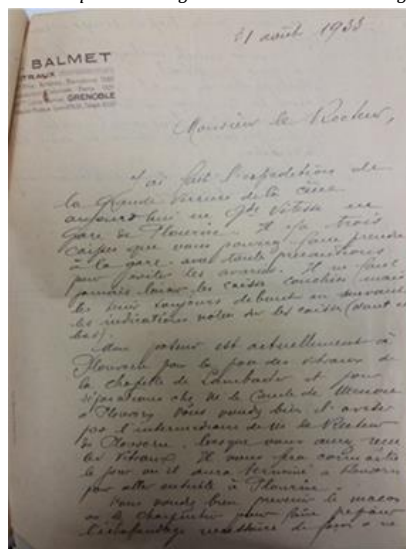 31 août 1933
BALMET
VITRAUX
GRENOBLE
Monsieur le Recteur,
J'ai fait l'expédition de
la Grande Verrière de la cène
aujourd'hui en Gde Vitesse en
gare de Plouénan. Il y a trois
caisses que vous pourrez faire prendre
à la gare avec toute précautions
pour éviter les avaries. Il ne faut
jamais laisser les caisses couchées mais
les tenir toujours debout en suivant
les indications notées sur les caisses (haut et
bas).
Mon poseur est actuellement à
pour la pose des vitraux de
la chapelle de Lambader et pour
réparations chez Mr le Comte de
à Vous voudrez bien l'aviser
par l'intermédiaire de Mr le Recteur
de lorsque vous aurez reçu
les vitraux. Il vous fera connaître
le jour où il aura terminé à
pour aller ensuite à
Vous voudrez bien prévenir le maçon
ou le charpentier pour faire préparer
l'échafaudage nécessaire de façon à ce